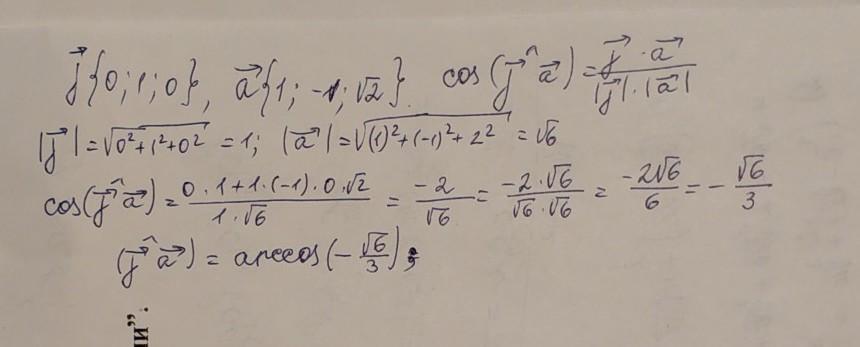 j⃗{0; 1; 0}, a⃗{1; -1; √2}. cos(j⃗ ^ a⃗) = (j⃗ · a⃗)/(|j⃗| · |a⃗|)
|j⃗| = √(0² + 1² + 0²) = 1; |a⃗| = √((1)² + (-1)² + 2²) = √6
cos(j⃗ ^ a⃗) = (0 · 1 + 1 · (-1) · 0 · √2)/(1 · √6) = -2/√6 = (-2 · √6)/(√6 · √6) = -2√6/6 = - √6/3
(j⃗ ^ a⃗) = arccos(- √6/3);
ии”.